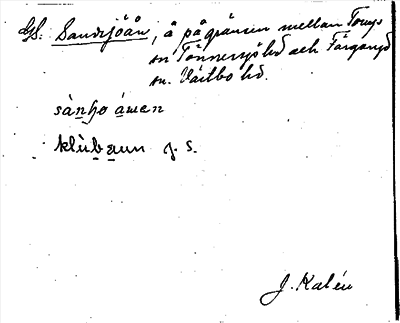 GS. Sandsjöån, å på gränsen mellan Torup
sn Tönnersjö hd och Färgaryd
sn. Västbo hd.
sànho áwen
klùbaun g. s.
J. Kalén